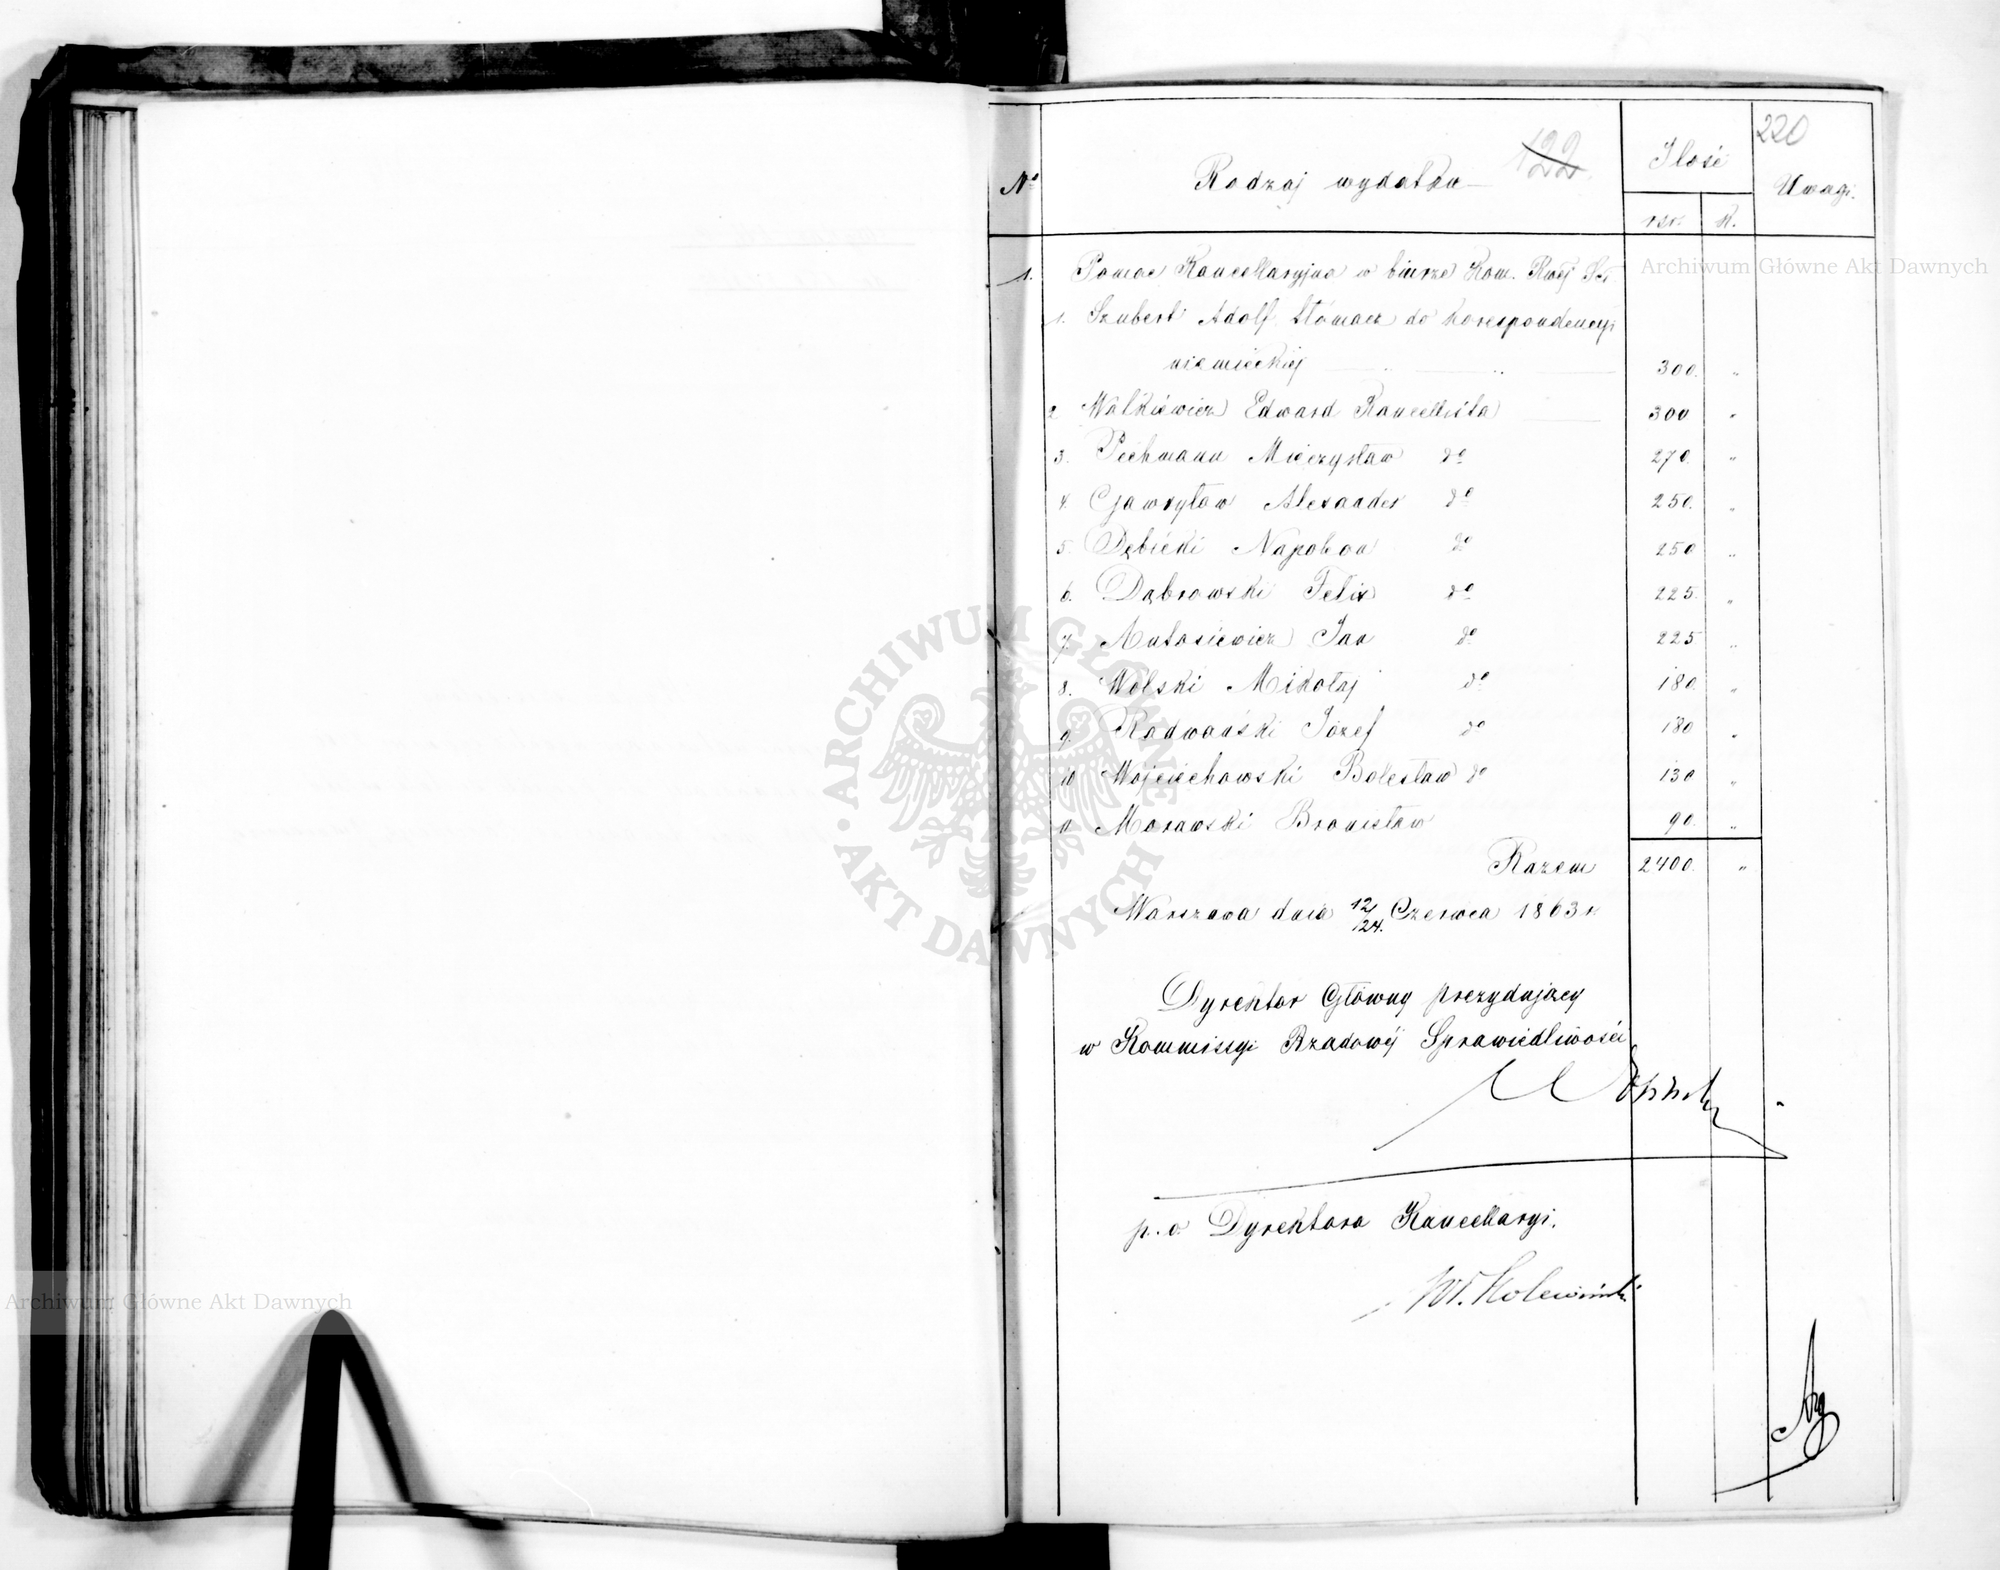 220
122
Nº Rodzaj wydatku Ilość Uwagi.
rsr. k.
1. Pomoc Kancellaryjna w biurze Kom. Rwej Spr.
1. Szubert Adolf tłómacz do korespondencyi
niemieckiej 300. "
2. Wałkiewicz Edward Kancellista 300 "
3. Pechmann Mieczysław dº 270. "
4. Gawryłow Alexander dº 250. "
5. Dębicki Napoleon dº 250 "
6. Dąbrowski Felix dº 225. "
7. Antosiewicz Jan dº 225 "
8. Wolski Mikołaj dº 180. "
9. Radwański Józef dº 180 "
10 Wojciechowski Bolesław dº 130 "
11. Morawski Bronisław 90. "
Razem 2400. "
Warszawa dnia 12/24. Czerwca 1863 r.
Dyrektor Główny prezydujący
w Kommissyi Rządowéj Sprawiedliwości
p.o. Dyrektora Kancellaryi.
Wł. Holewiński
Archiwum Główne Akt Dawnych
ARCHIWUM GŁÓWNE AKT DAWNYCH
Archiwum Główne Akt Dawnych